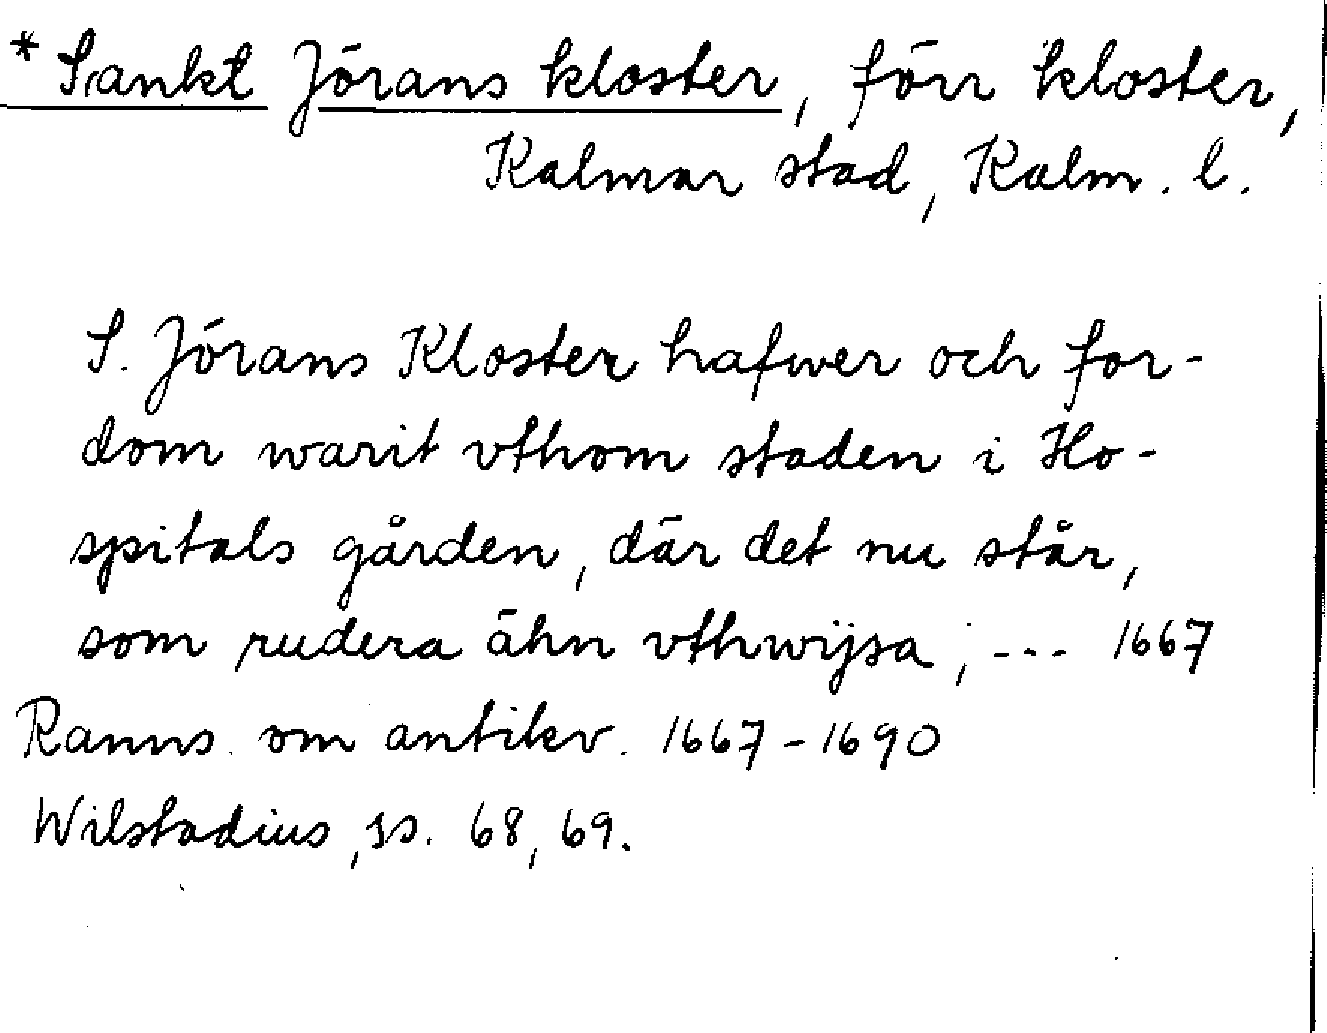 * Sankt Jörans kloster, förr kloster,
Kalmar stad, Kalm. l.
S. Jörans Kloster hafwer och for-
dom warit vthom staden i Ho-
spitals gården, där det nu står,
som rudera ähn vthwijsa; --- 1667
Ranns. om antikv. 1667-1690
Wilstadius, ss. 68, 69.